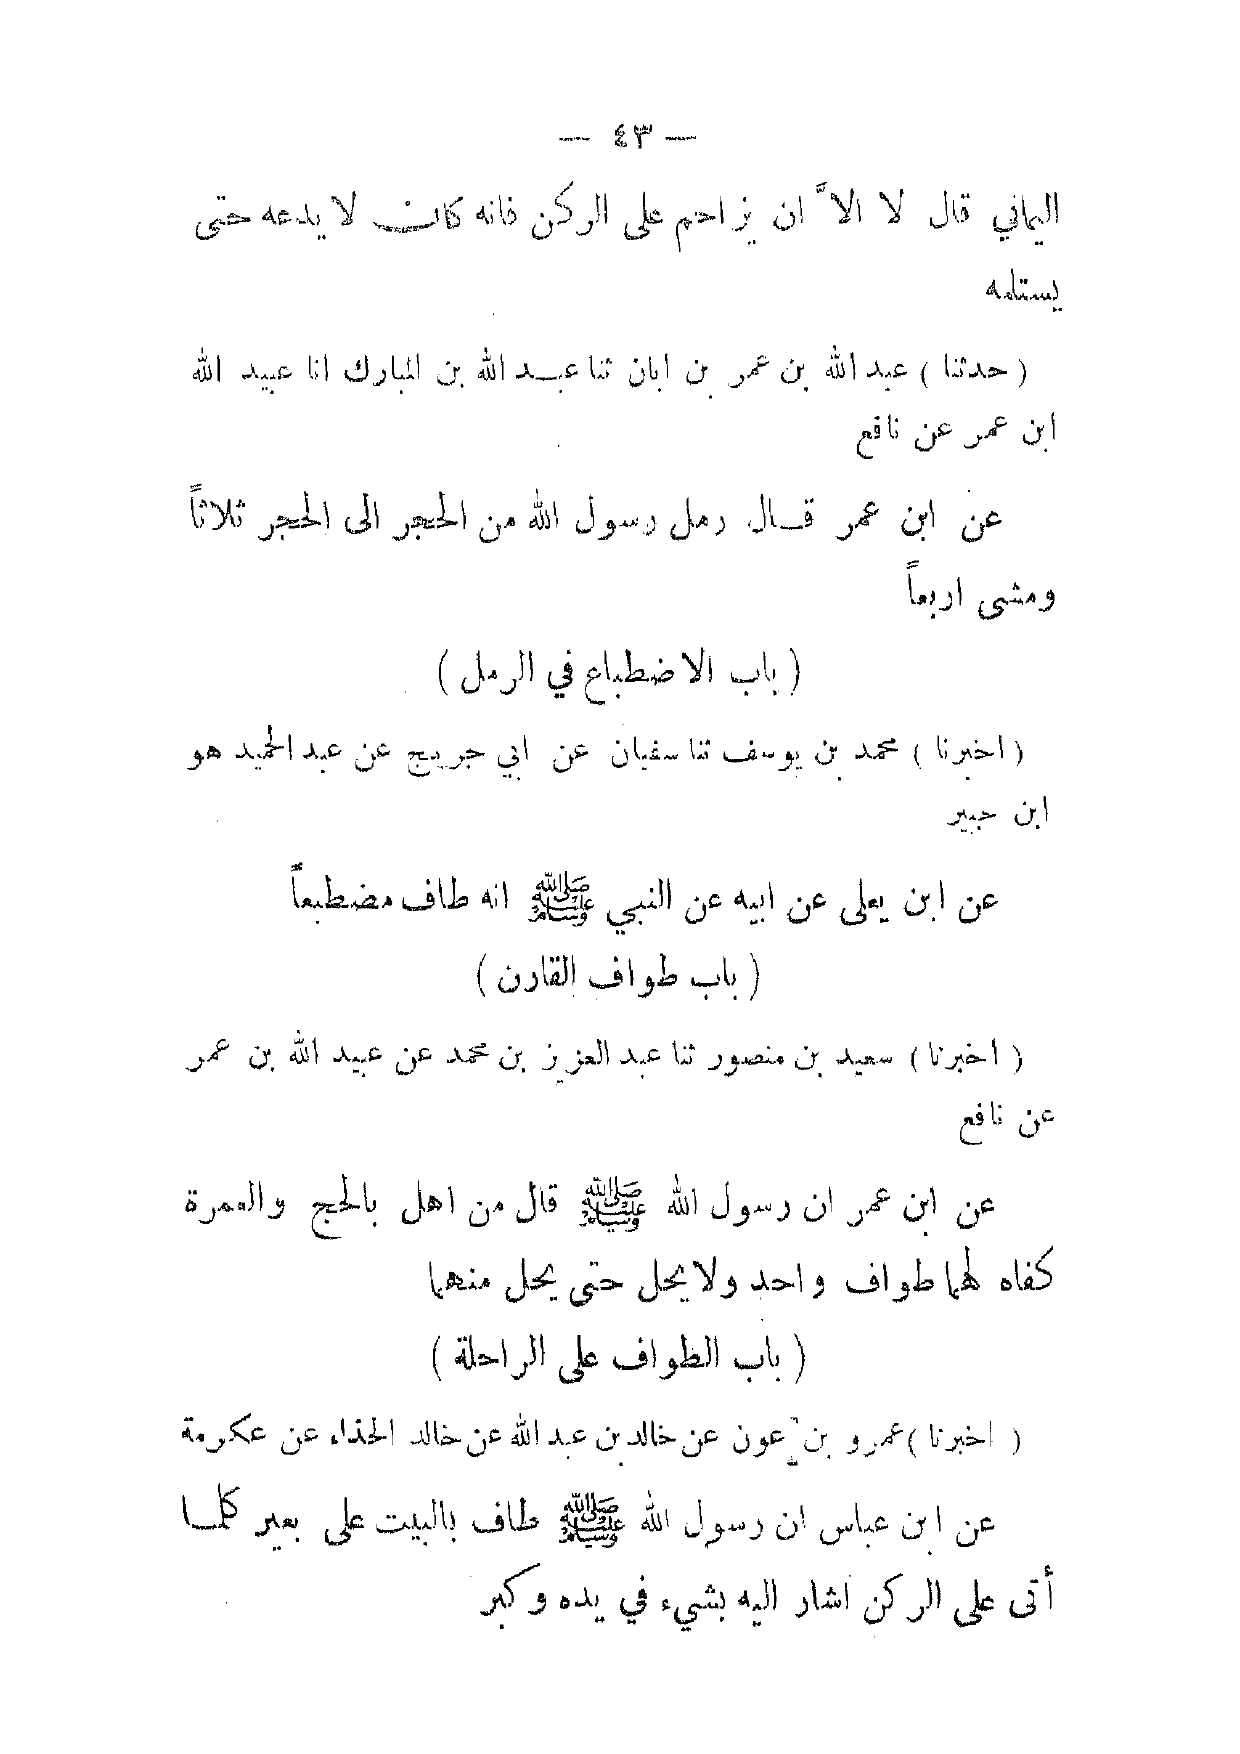 — ٤٣ —
اليماني قال لا الاَّ ان يزاحم على الركن فانه كان لا يدعه حتى
يستلمه
( حدثنا ) عبد الله بن عمر بن ابان ثنا عبد الله بن المبارك انا عبيد الله
ابن عمر عن نافع
عن ابن عمر قال رمل رسول الله من الحجر الى الحجر ثلاثاً
ومشى اربعاً
( باب الاضطباع في الرمل )
( اخبرنا ) محمد بن يوسف ثنا سفيان عن ابي جريج عن عبد الحميد هو
ابن جبير
عن ابن يعلى عن ابيه عن النبي ﷺ انه طاف مضطبعاً
( باب طواف القارن )
( اخبرنا ) سعيد بن منصور ثنا عبد العزيز بن محمد عن عبيد الله بن عمر
عن نافع
عن ابن عمر ان رسول الله ﷺ قال من اهل بالحج والعمرة
كفاه لهما طواف واحد ولا يحل حتى يحل منهما
( باب الطواف على الراحلة )
( اخبرنا ) عمرو بن عون عن خالد بن عبد الله عن خالد الحذاء عن عكرمة
عن ابن عباس ان رسول الله ﷺ طاف بالبيت على بعير كلما
أتى على الركن اشار اليه بشيء في يده وكبر